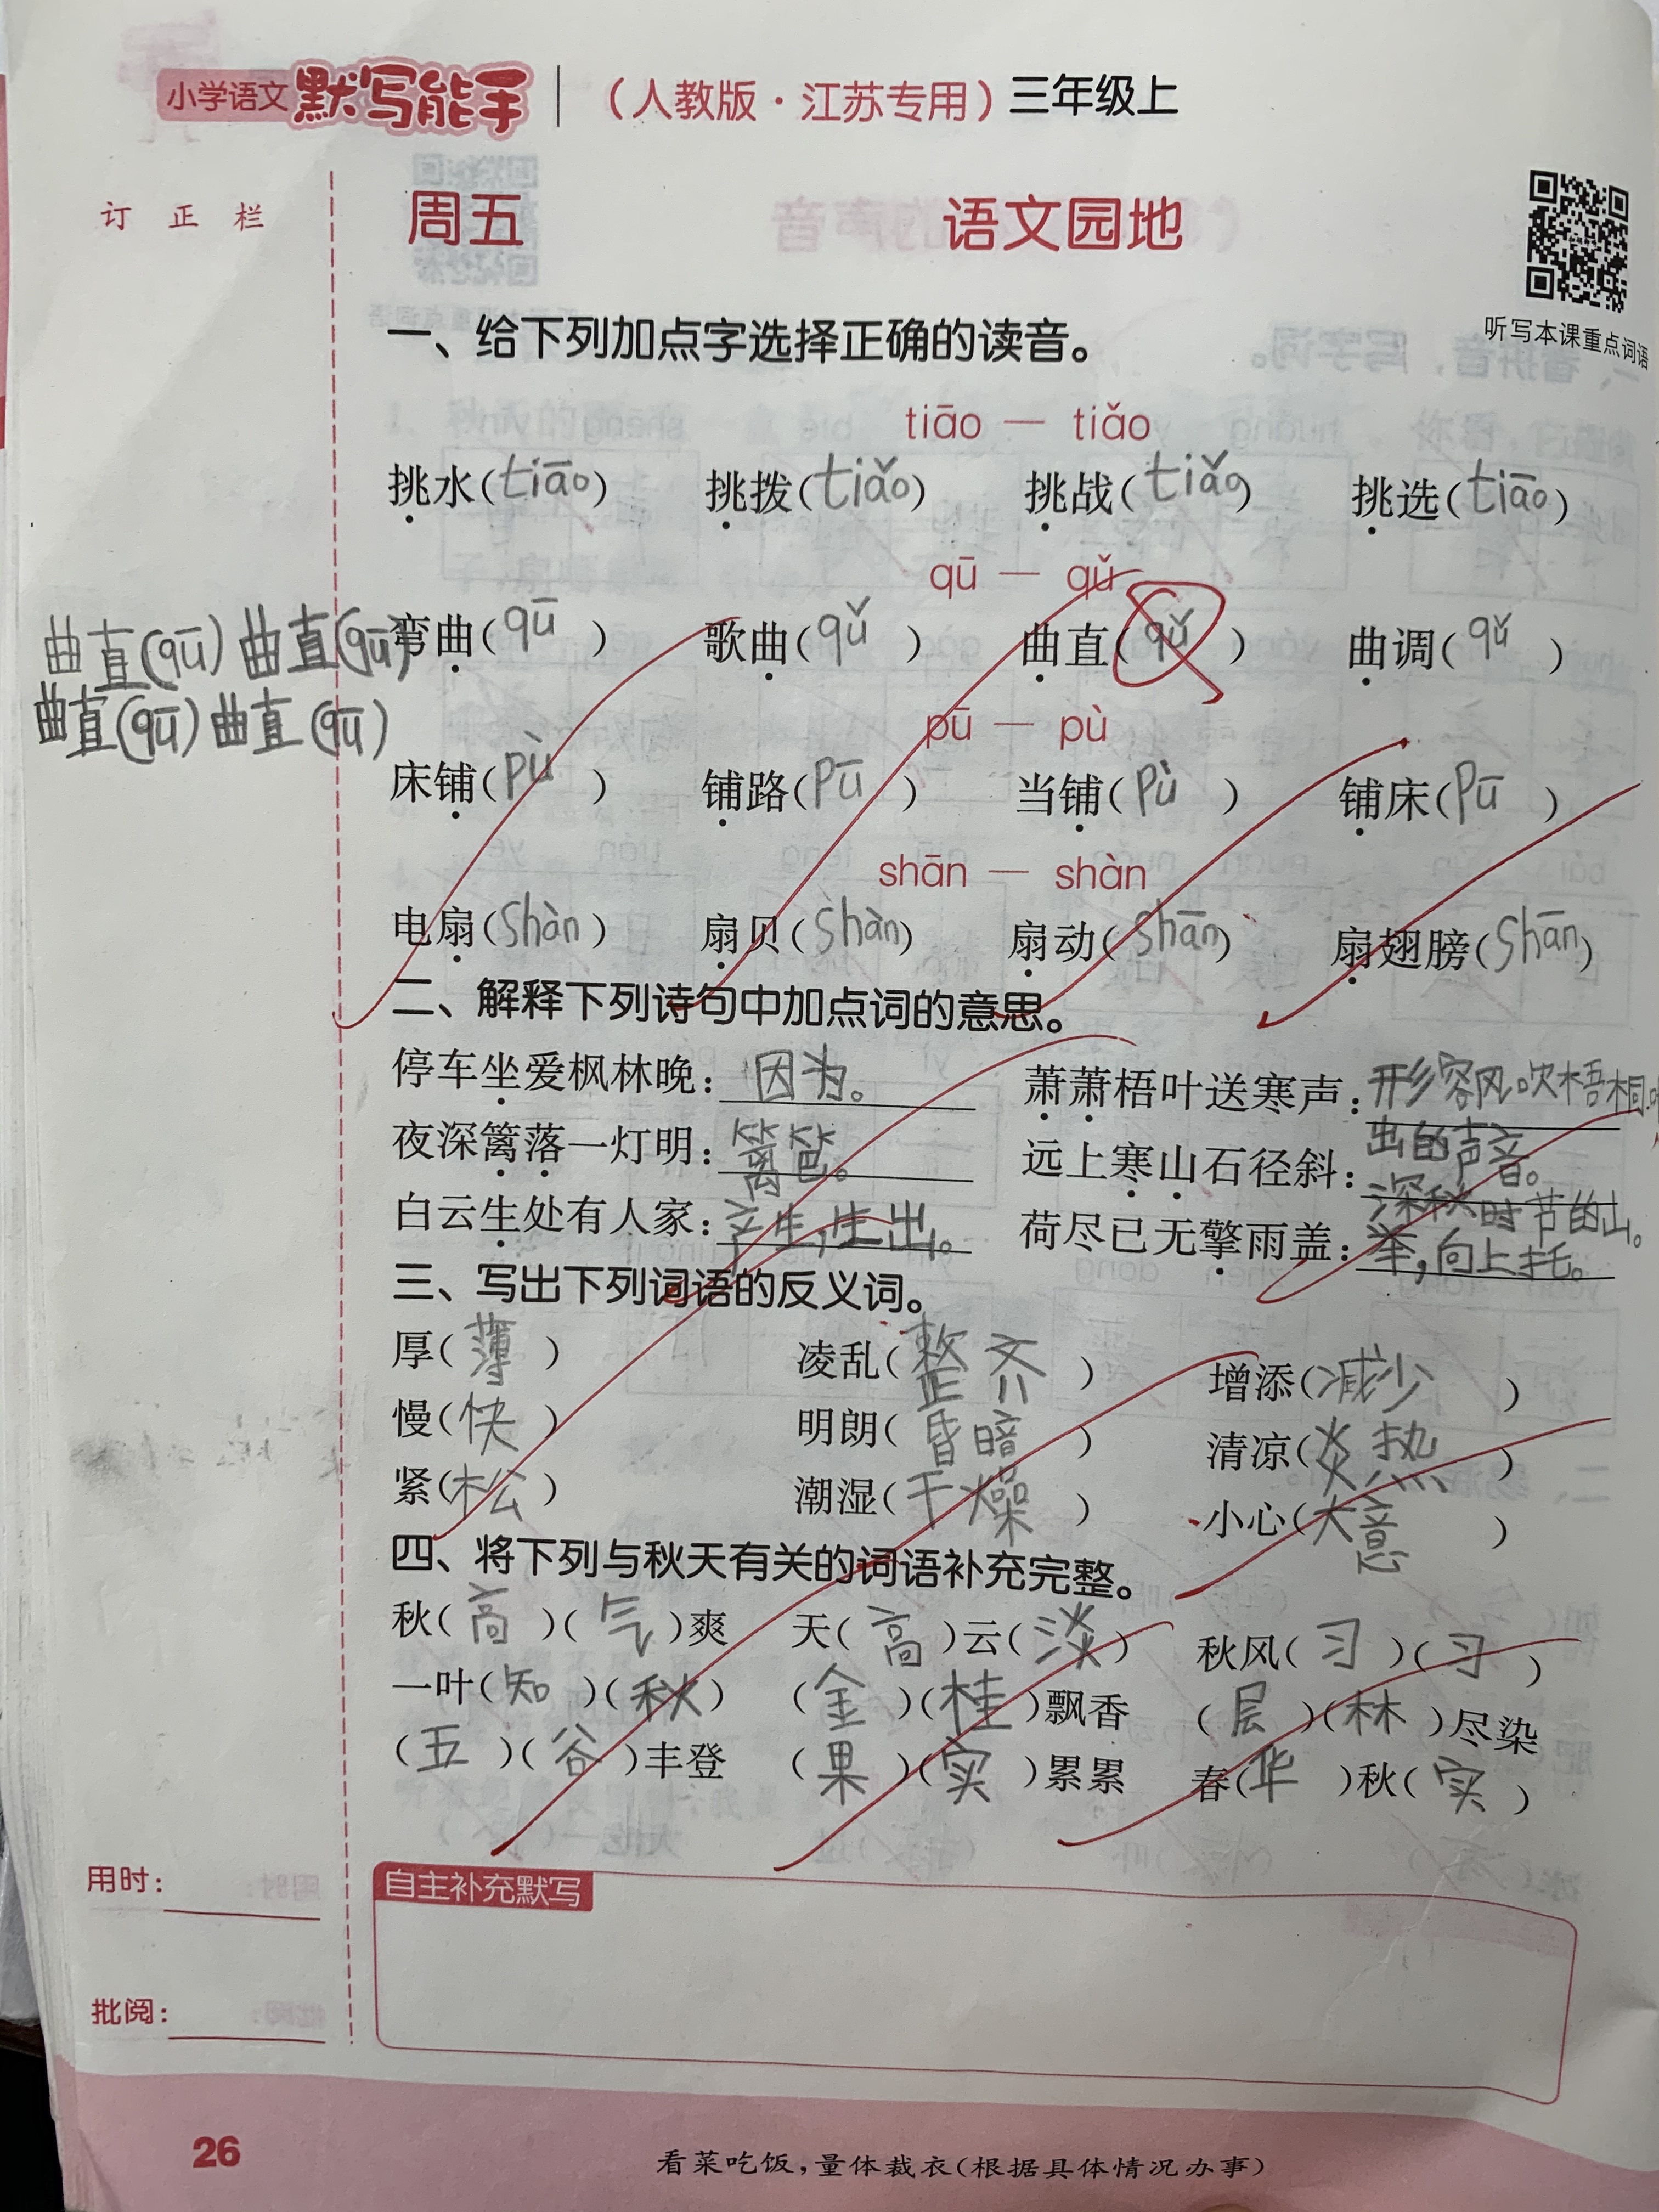 小学语文 默写能手 （人教版·江苏专用）三年级上
订正栏
周五 语文园地
听写本课重点词语
一、给下列加点字选择正确的读音。
tiāo — tiǎo
挑水(tiāo) 挑拨(tiǎo) 挑战(tiǎo) 挑选(tiāo)
qū — qǔ
弯曲(qū) 歌曲(qǔ) 曲直(qǔ) 曲调(qǔ)
曲直(qū) 曲直(qū)
曲直(qū) 曲直(qū)
pū — pù
床铺(pù) 铺路(pū) 当铺(pù) 铺床(pū)
shān — shàn
电扇(shàn) 扇贝(shàn) 扇动(shān) 扇翅膀(shān)
二、解释下列诗句中加点词的意思。
停车坐爱枫林晚：因为。 萧萧梧叶送寒声：形容风吹梧桐
出的声音。
夜深篱落一灯明：篱笆。 远上寒山石径斜：深秋时节的山。
白云生处有人家：产生，生出。 荷尽已无擎雨盖：举，向上托。
三、写出下列词语的反义词。
厚(薄) 凌乱(整齐) 增添(减少)
慢(快) 明朗(昏暗) 清凉(炎热)
紧(松) 潮湿(干燥) 小心(大意)
四、将下列与秋天有关的词语补充完整。
秋(高)(气)爽 天(高)云(淡) 秋风(习)(习)
一叶(知)(秋) (金)(桂)飘香 (层)(林)尽染
(五)(谷)丰登 (果)(实)累累 春(华)秋(实)
用时：
自主补充默写
批阅：
26
看菜吃饭，量体裁衣（根据具体情况办事）